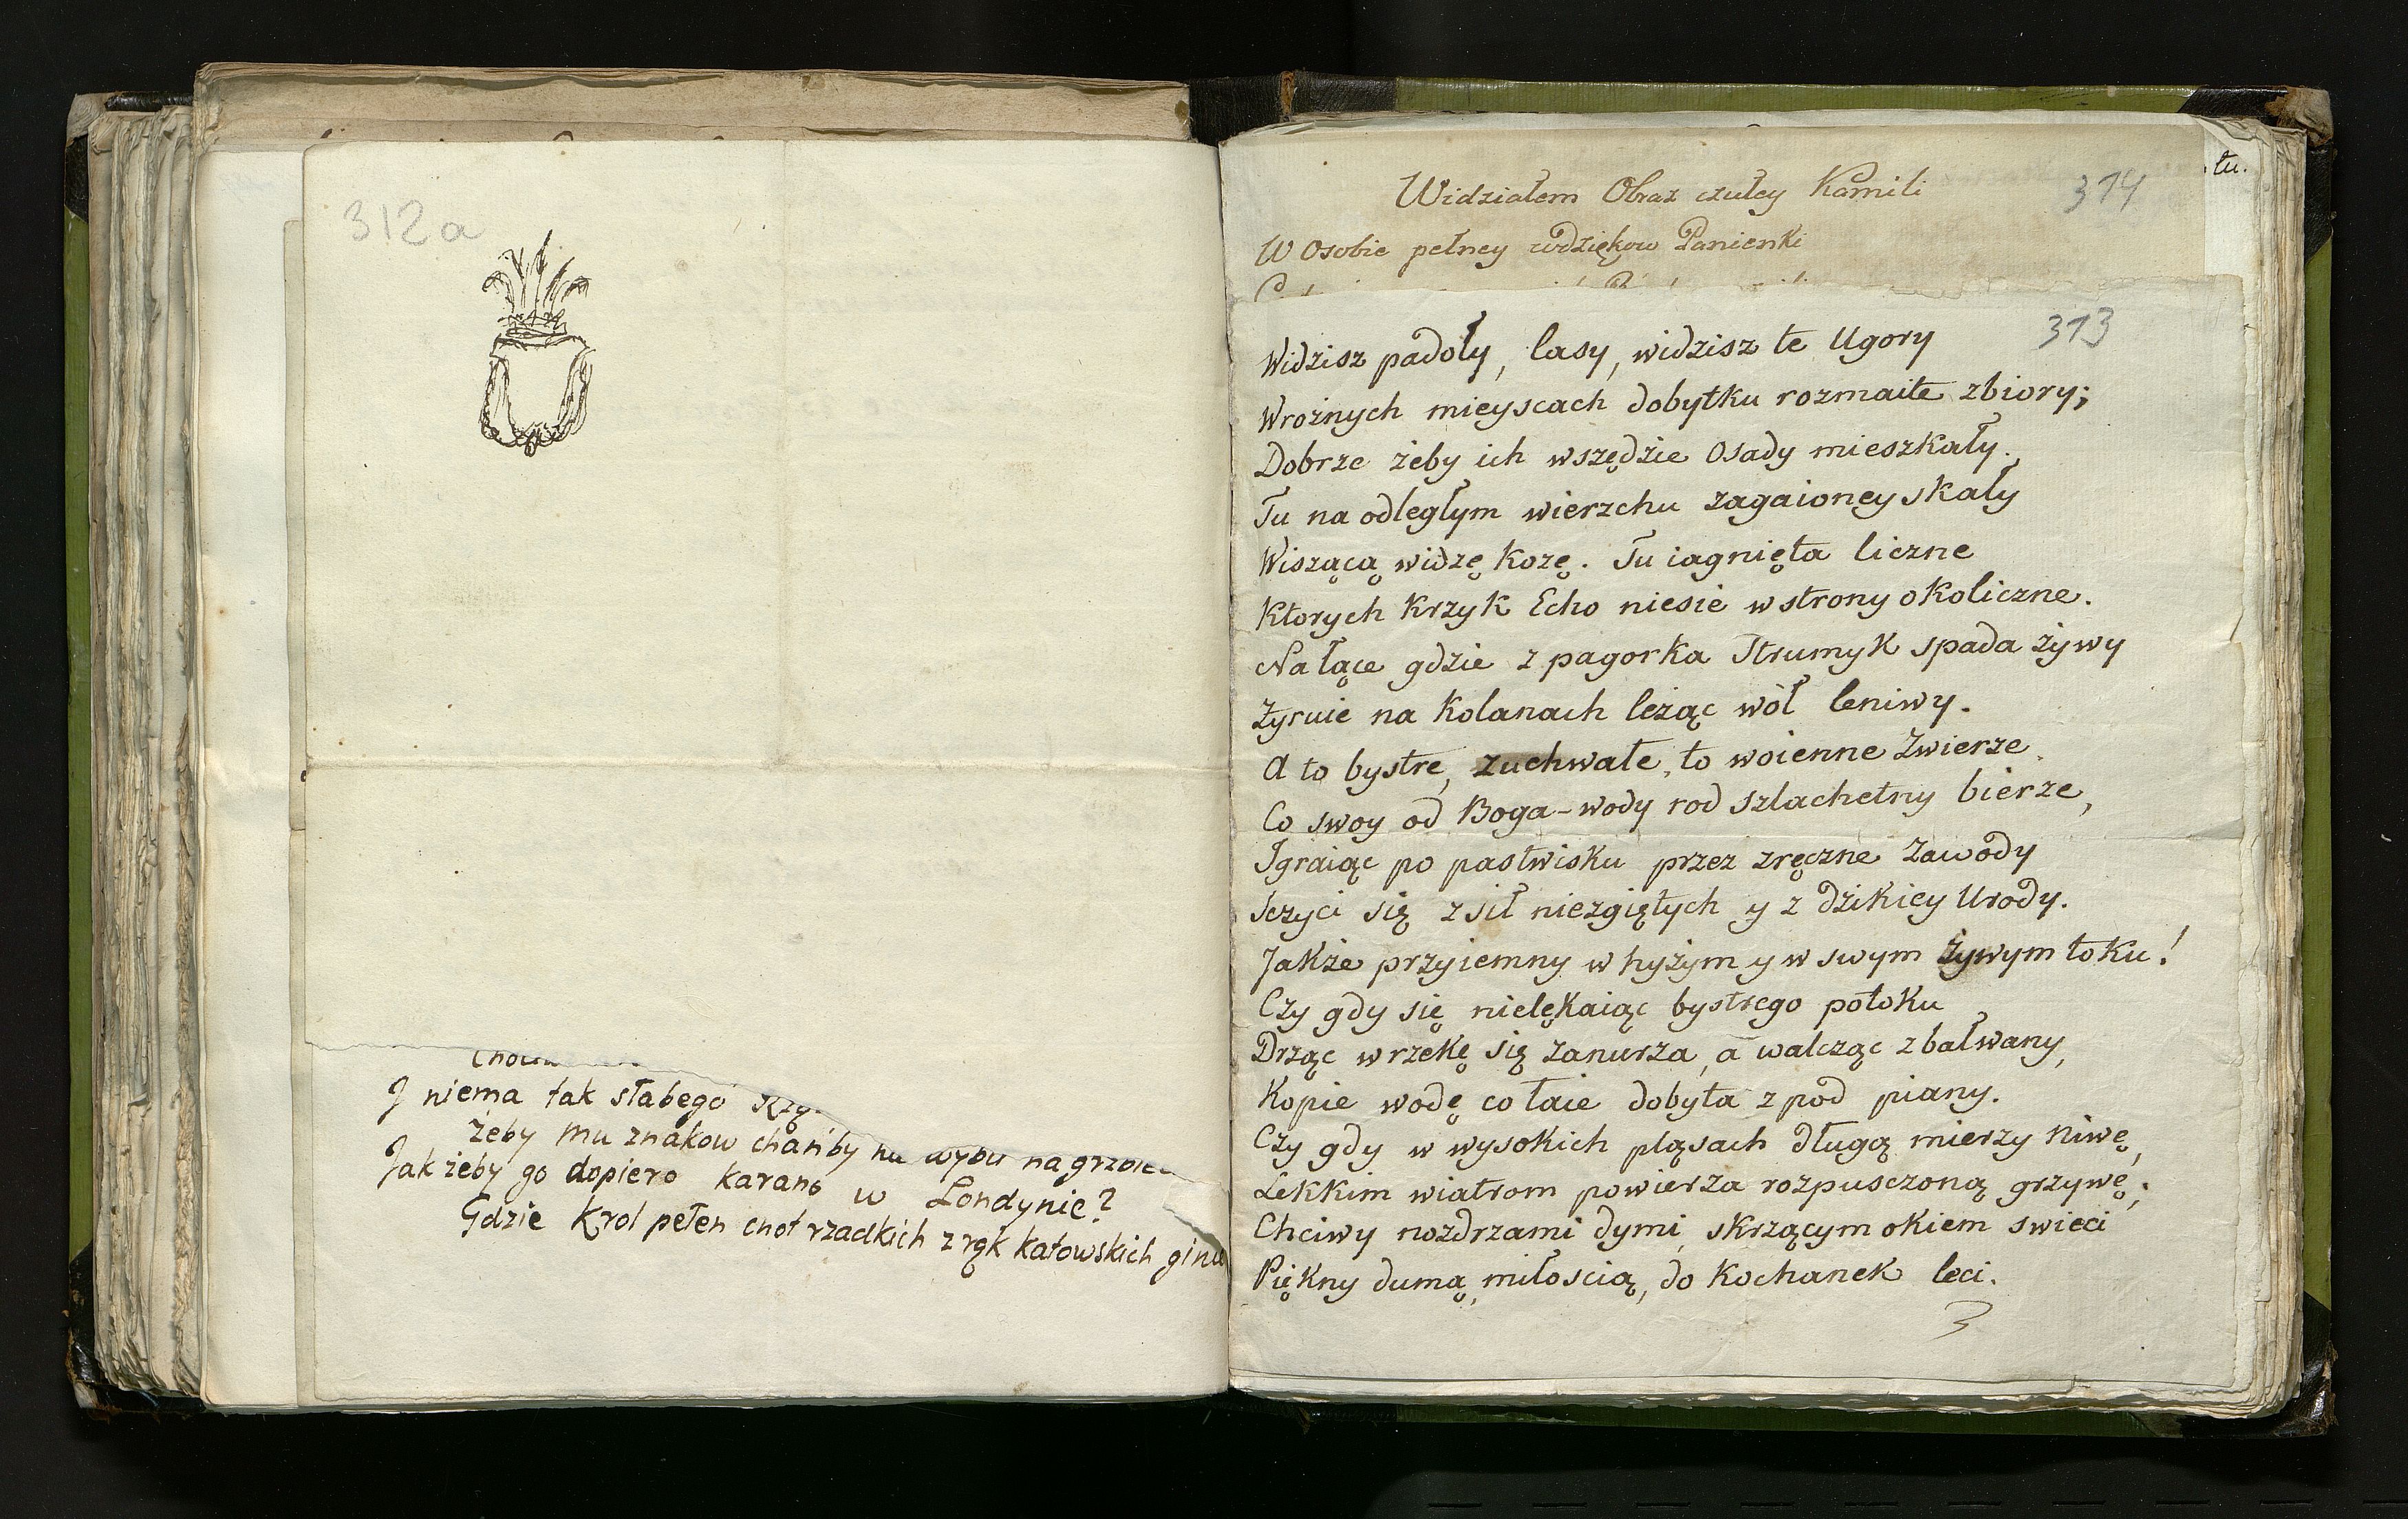 312a
I niema tak słabego
żeby mu znakow chańby nu wybu na grzbie
Jak żeby go dopiero karano w Londynie?
Gdzie Krol pełen cnot rzadkich z rąk katowskich ginie
łu.
314
Widziałem Obraz czułey Kamili
W Osobie pełney wdzięków Panienki
313
Widzisz padoły, lasy, widzisz te Ugory
Wrożnych mieyscach dobytku rozmaite zbiory;
Dobrze żeby ich wszędzie Osady mieszkały.
Tu na odległym wierzchu zagaioney skały
Wiszącą widzę kozę. Tu iagnięta liczne
Ktorych krzyk Echo niesie w strony okoliczne.
Na łące gdzie z pagorka Strumyk spada żywy
Żyruie na kolanach leżąc wół leniwy.
A to bystre, zuchwałe, to woienne Zwierze,
Co swoy od Boga-wody rod szlachetny bierze,
Igraiąc po pastwisku przez zręczne zawody
Sczyci się z sił niezgiętych y z dzikiey Urody.
Jakże przyiemny w hyżym y w swym żywym toku!
Czy gdy się nielękaiąc bystrego potoku
Drząc w rzekę się zanurza, a walcząc z bałwany,
Kopie wodę co taie dobyta z pod piany.
Czy gdy w wysokich pląsach długą mierzy niwę,
Lekkim wiatrom powierza rozpusczoną grzywę;
Chciwy nozdrzami dymi, skrzącym okiem swieci
Piękny dumą, miłoscią, do Kochanek leci.